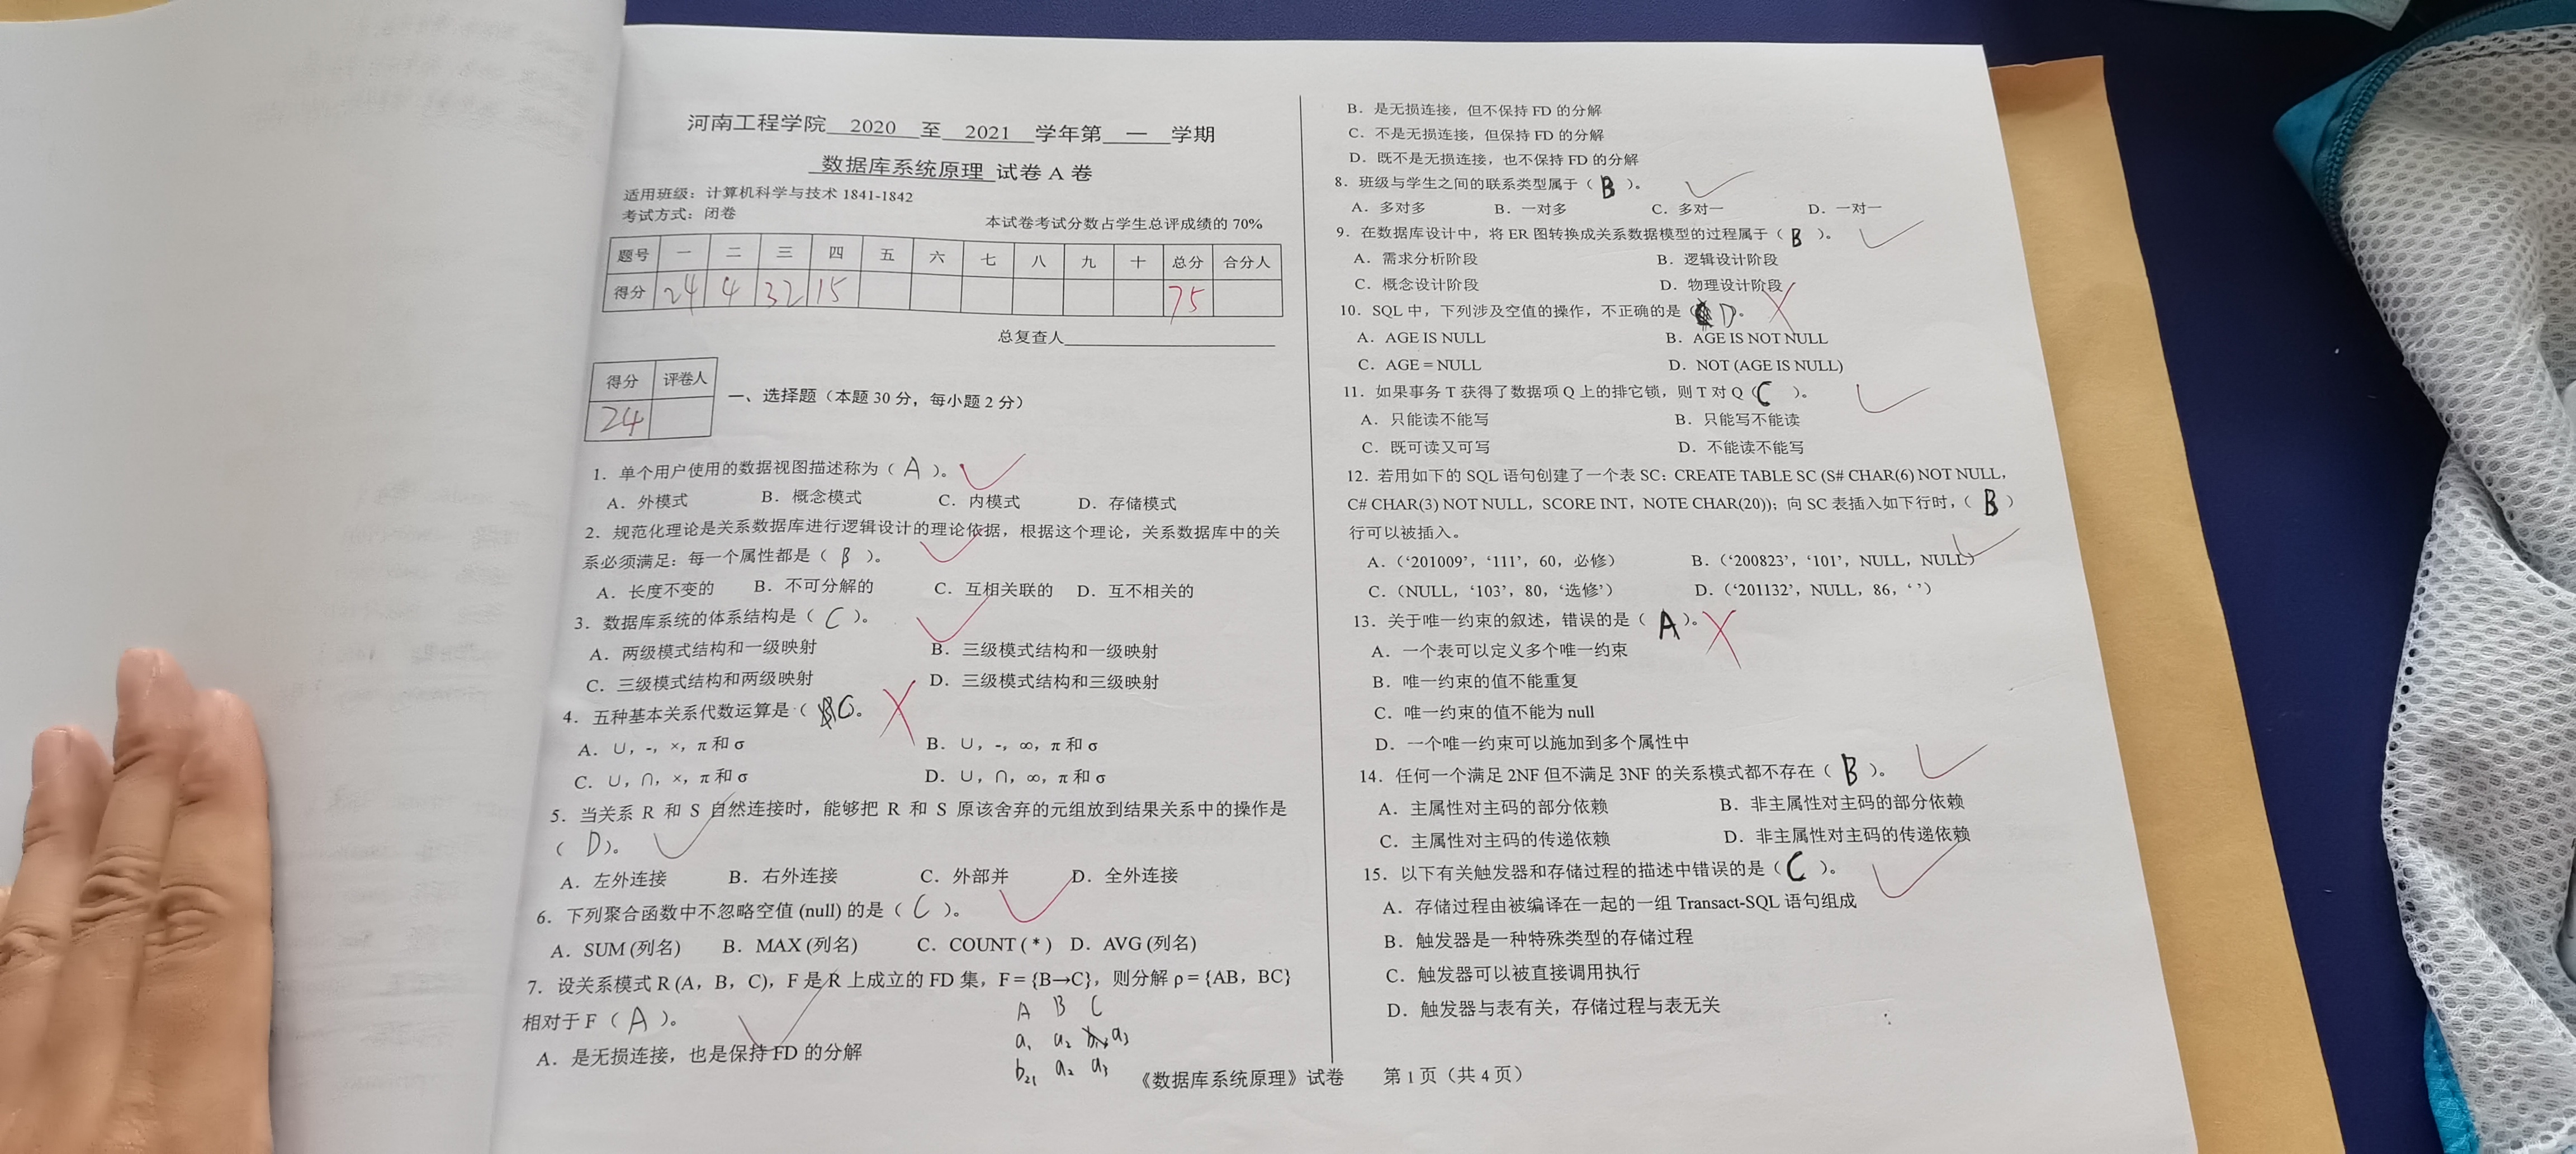 河南工程学院 2020 至 2021 学年第 一 学期
数据库系统原理 试卷 A 卷
适用班级：计算机科学与技术 1841-1842
考试方式：闭卷
本试卷考试分数占学生总评成绩的 70%
题号 一 二 三 四 五 六 七 八 九 十 总分 合分人
得分 24 4 32 15 75
总复查人
得分 评卷人
24
一、选择题（本题 30 分，每小题 2 分）
1．单个用户使用的数据视图描述称为（ A ）。
A．外模式 B．概念模式 C．内模式 D．存储模式
2．规范化理论是关系数据库进行逻辑设计的理论依据，根据这个理论，关系数据库中的关
系必须满足：每一个属性都是（ B ）。
A．长度不变的 B．不可分解的 C．互相关联的 D．互不相关的
3．数据库系统的体系结构是（ C ）。
A．两级模式结构和一级映射 B．三级模式结构和一级映射
C．三级模式结构和两级映射 D．三级模式结构和三级映射
4．五种基本关系代数运算是（ C 。
A．∪，-，×，π 和 σ B．∪，-，∞，π 和 σ
C．∪，∩，×，π 和 σ D．∪，∩，∞，π 和 σ
5．当关系 R 和 S 自然连接时，能够把 R 和 S 原该舍弃的元组放到结果关系中的操作是
（ D ）。
A．左外连接 B．右外连接 C．外部并 D．全外连接
6．下列聚合函数中不忽略空值 (null) 的是（ C ）。
A．SUM (列名) B．MAX (列名) C．COUNT ( * ) D．AVG (列名)
7．设关系模式 R (A，B，C)，F 是 R 上成立的 FD 集，F = {B→C}，则分解 ρ = {AB，BC}
相对于 F（ A ）。
A．是无损连接，也是保持 FD 的分解
A B C
a₁ a₂ a₃
b₂₁ a₂ a₃
B．是无损连接，但不保持 FD 的分解
C．不是无损连接，但保持 FD 的分解
D．既不是无损连接，也不保持 FD 的分解
8．班级与学生之间的联系类型属于（ B ）。
A．多对多 B．一对多 C．多对一 D．一对一
9．在数据库设计中，将 ER 图转换成关系数据模型的过程属于（ B ）。
A．需求分析阶段 B．逻辑设计阶段
C．概念设计阶段 D．物理设计阶段
10．SQL 中，下列涉及空值的操作，不正确的是（ D ）。
A．AGE IS NULL B．AGE IS NOT NULL
C．AGE = NULL D．NOT (AGE IS NULL)
11．如果事务 T 获得了数据项 Q 上的排它锁，则 T 对 Q（ C ）。
A．只能读不能写 B．只能写不能读
C．既可读又可写 D．不能读不能写
12．若用如下的 SQL 语句创建了一个表 SC：CREATE TABLE SC (S# CHAR(6) NOT NULL，
C# CHAR(3) NOT NULL，SCORE INT，NOTE CHAR(20))；向 SC 表插入如下行时，（ B ）
行可以被插入。
A．（‘201009’，‘111’，60，必修） B．（‘200823’，‘101’，NULL，NULL）
C．（NULL，‘103’，80，‘选修’） D．（‘201132’，NULL，86，‘ ’）
13．关于唯一约束的叙述，错误的是（ A ）。
A．一个表可以定义多个唯一约束
B．唯一约束的值不能重复
C．唯一约束的值不能为 null
D．一个唯一约束可以施加到多个属性中
14．任何一个满足 2NF 但不满足 3NF 的关系模式都不存在（ B ）。
A．主属性对主码的部分依赖 B．非主属性对主码的部分依赖
C．主属性对主码的传递依赖 D．非主属性对主码的传递依赖
15．以下有关触发器和存储过程的描述中错误的是（ C ）。
A．存储过程由被编译在一起的一组 Transact-SQL 语句组成
B．触发器是一种特殊类型的存储过程
C．触发器可以被直接调用执行
D．触发器与表有关，存储过程与表无关
《数据库系统原理》试卷 第 1 页（共 4 页）